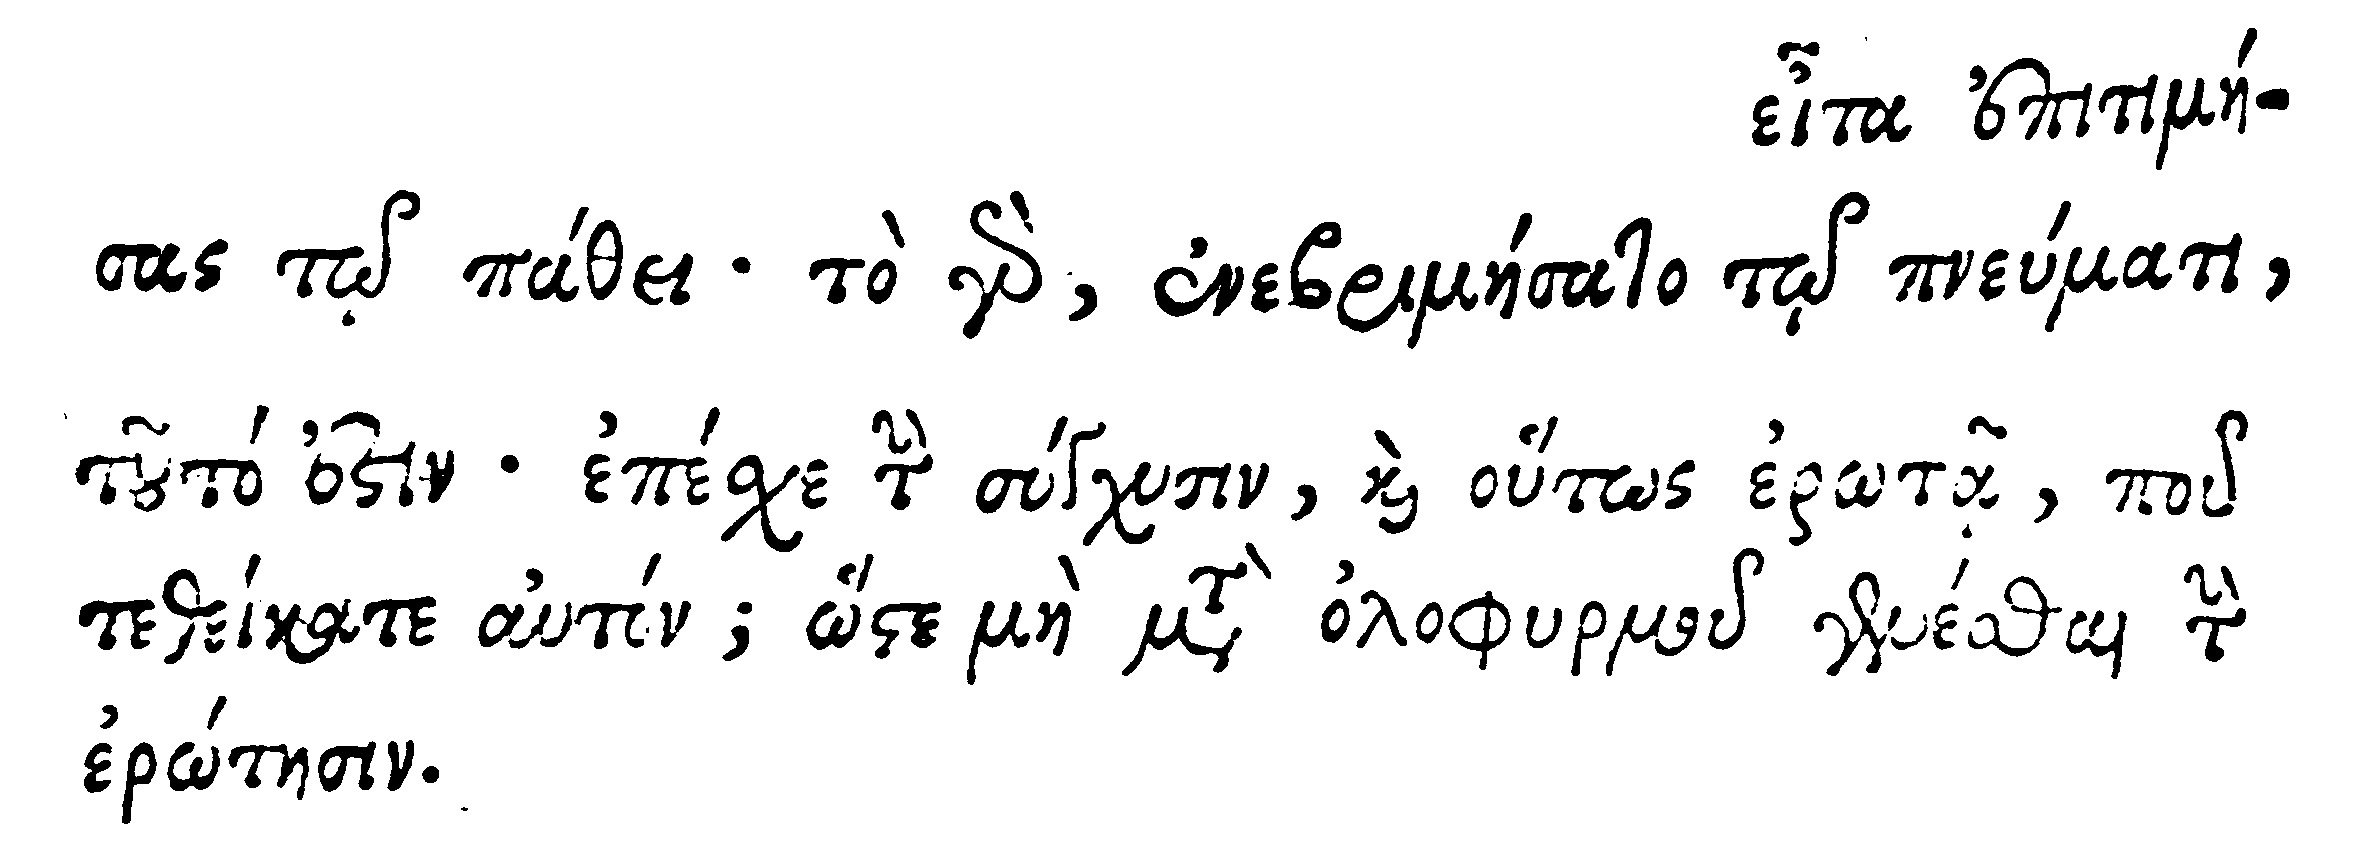 εἶτα ἐπιτιμή-
σας τῷ πάθει· τὸ γὰρ, ἐνεβριμήσατο τῷ πνεύματι,
τοῦτό ἐστιν· ἐπέσχε τὴν σύγχυσιν, καὶ οὕτως ἐρωτᾷ, ποῦ
τεθείκατε αὐτόν; ὥστε μὴ μετὰ ὀλοφυρμοῦ γενέσθαι τὴν
ἐρώτησιν.